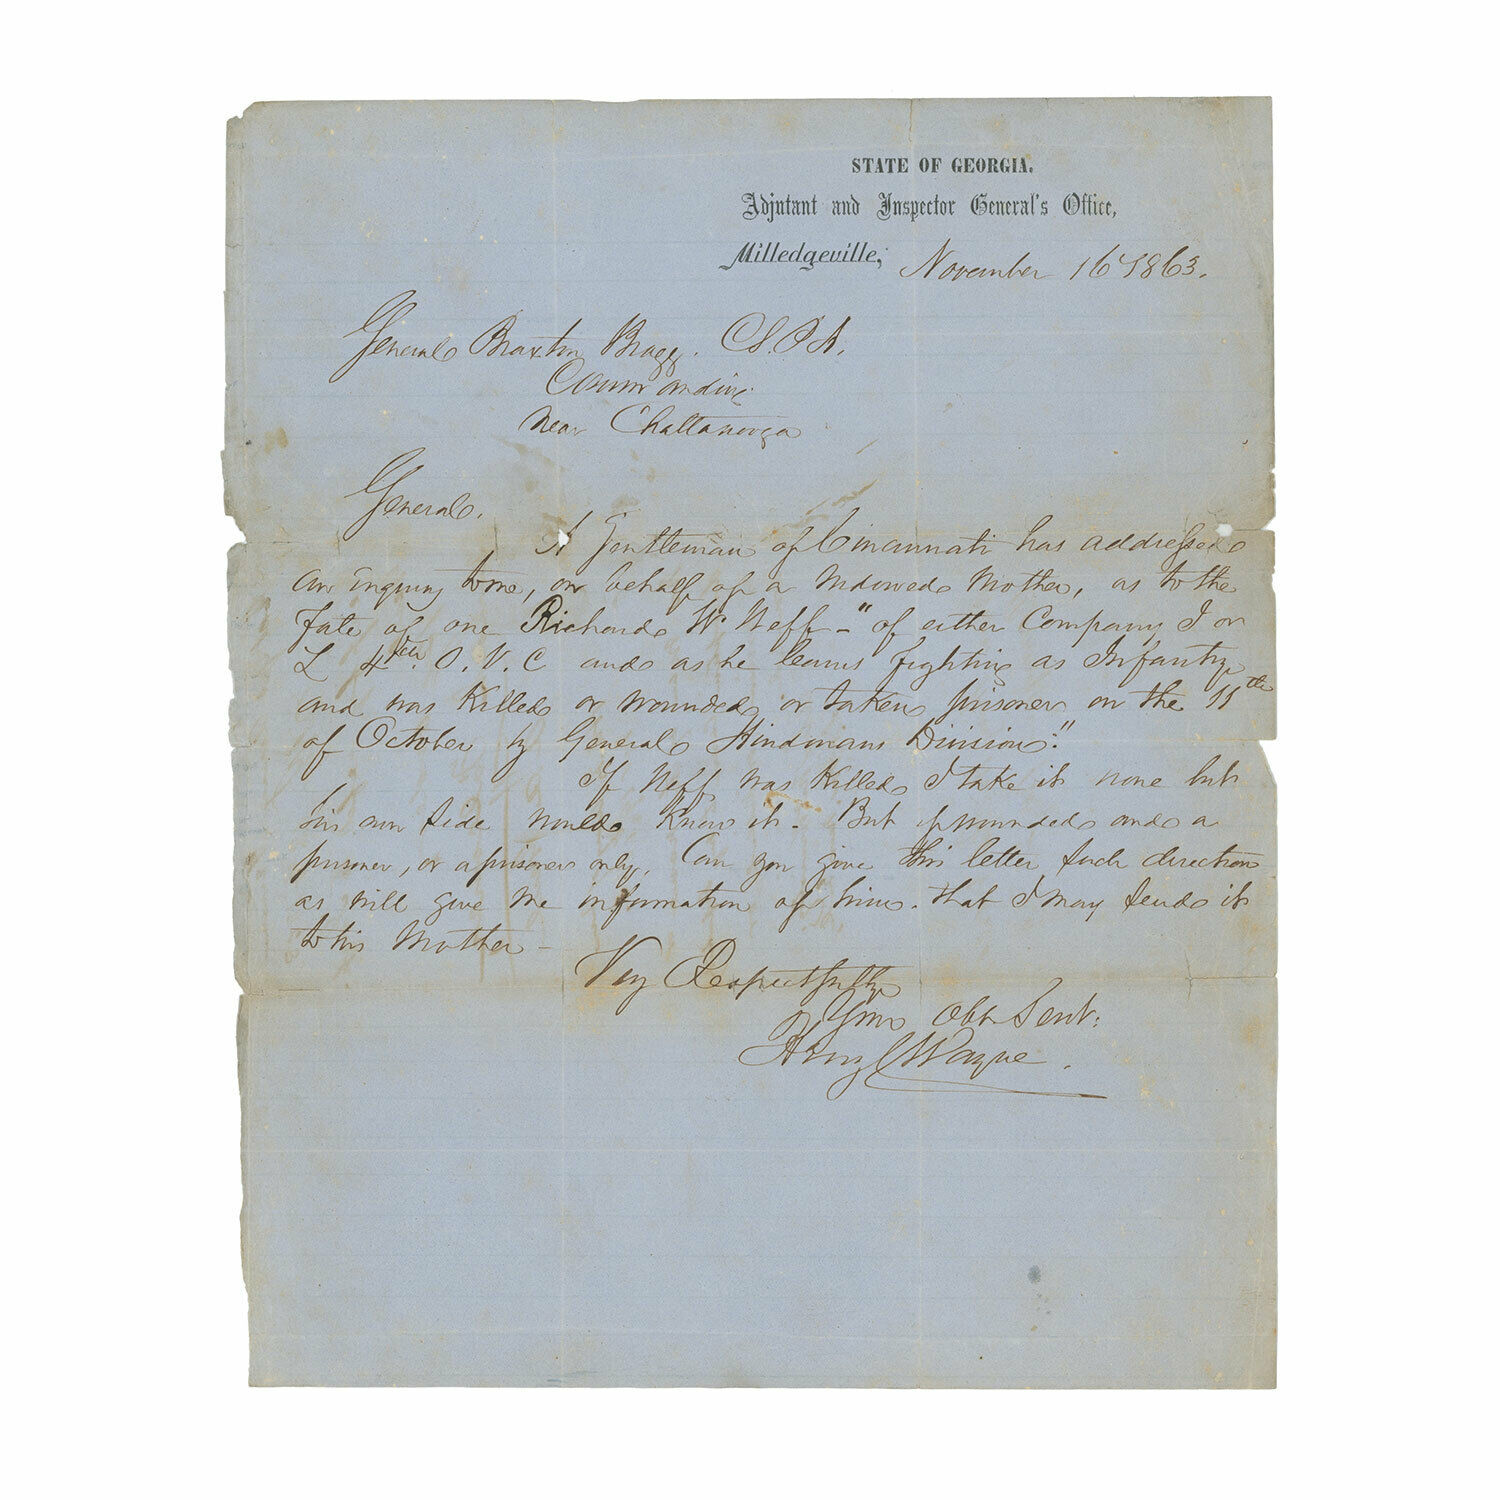 STATE OF GEORGIA.
Adjutant and Inspector General's Office,
Milledgeville, November 16 1863.
General Braxton Bragg. C.S.A.
Commanding
near Chattanooga
General.
A Gentleman of Cincinnati has addressed
an inquiry to me, on behalf of a widowed Mother, as to the
fate of one Richard W Neff - "of either Company I or
L 4th. O. V. C and as he learns fighting as Infantry
and was killed or wounded, or taken prisoner on the 11th
of October by General Hindmans Division."
If Neff was killed, I take it none but
his own side would know it - But if wounded and a
prisoner, or a prisoner only, Can you give this letter such direction
as will give me information of him. that I may send it
to his Mother -
Very Respectfully
Your Obt Servt:
Henry C Wayne.